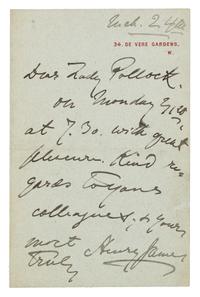 March 24th
34, DE VERE GARDENS,
W.
Dear Lady Pollock.
on Monday
at 7.30. with great
pleasure. Kind re-
gards to your
colleagues, & yours
most
truly Henry James